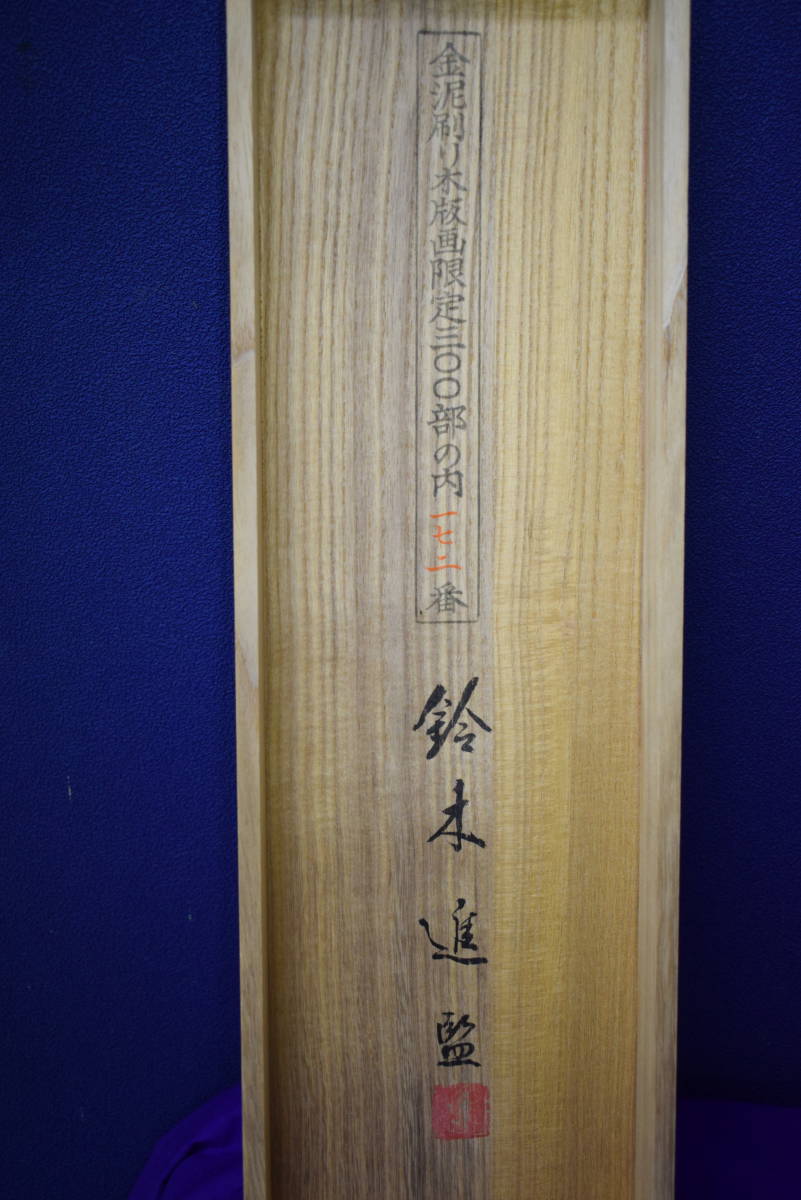 金泥刷り木版画限定三〇〇部の内一七二番
鈴木進監